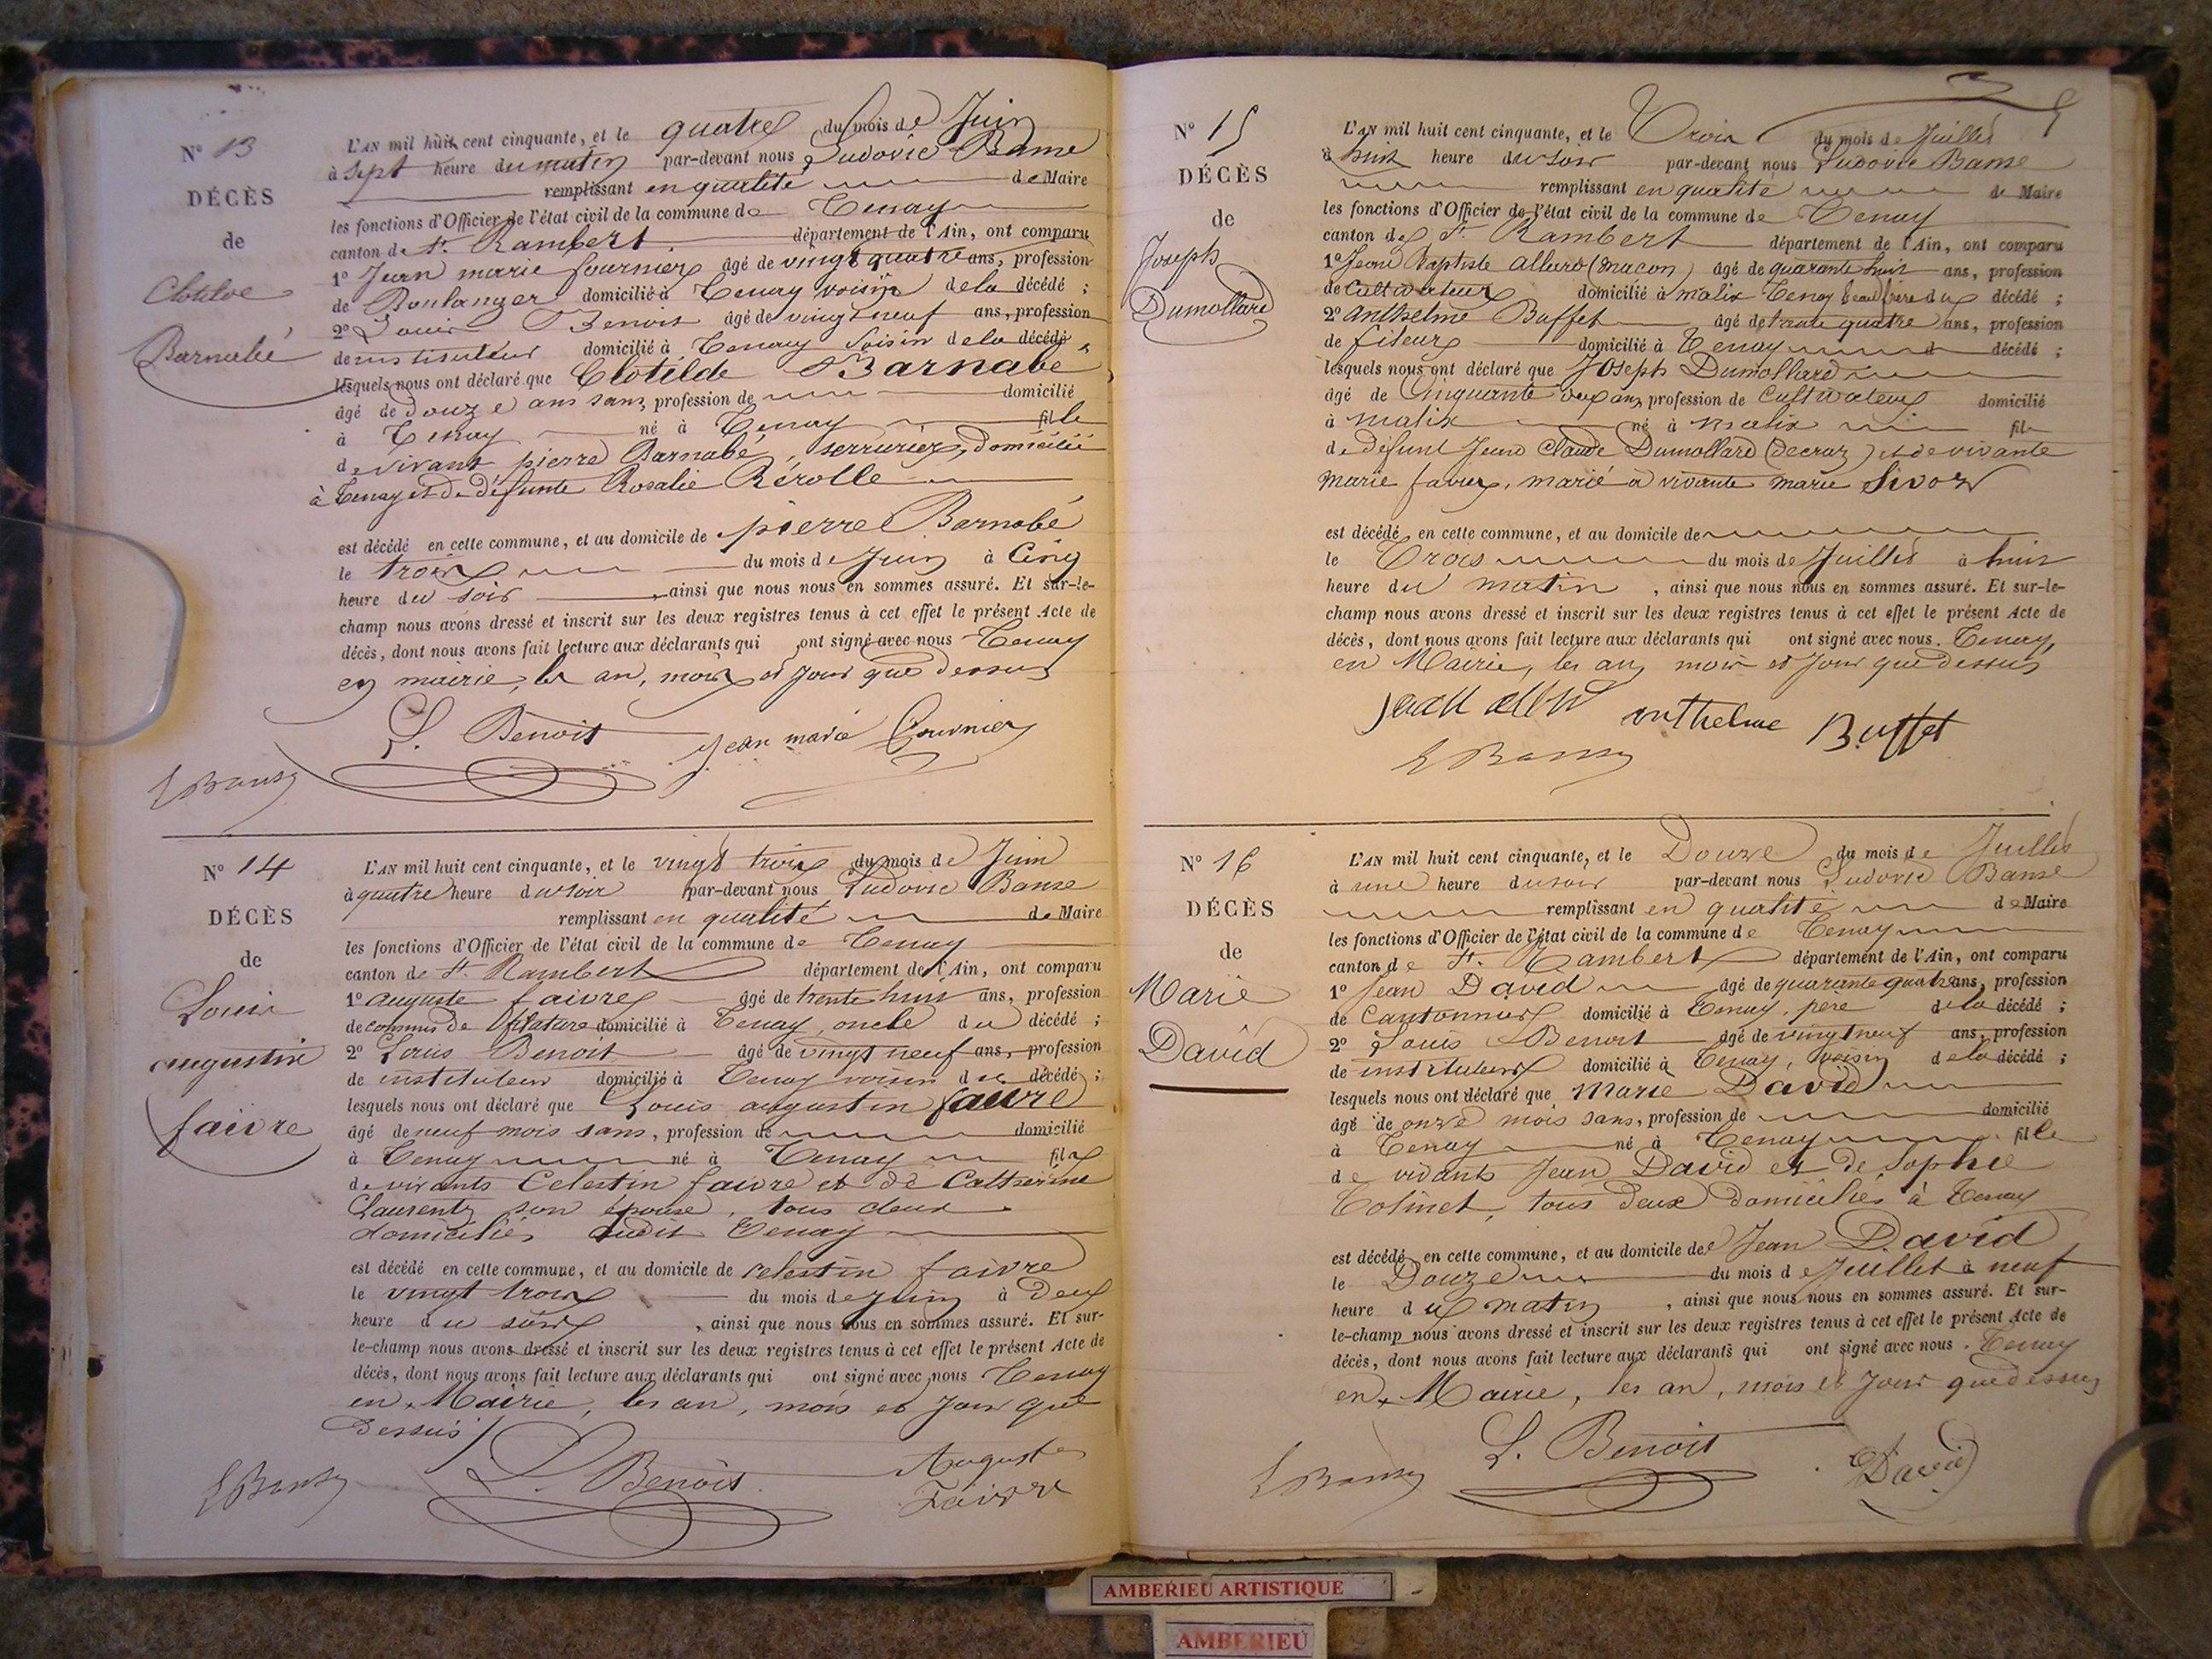 N° 13
DÉCÈS
de
Clotilde
Barnabé
L'AN mil huit cent cinquante, et le quatre du mois de Juin
à sept heure du matin par-devant nous Ludovic Banse
remplissant en qualité de Maire
les fonctions d'Officier de l'état civil de la commune de Tenay
canton de St. Rambert département de l'Ain, ont comparu
1° Jean marie fournier âgé de vingt quatre ans, profession
de Boulanger domicilié à Tenay voisin de la décédé ;
2° Louis Benoit âgé de vingt neuf ans, profession
de instituteur domicilié à Tenay voisin de la décédé
lesquels nous ont déclaré que Clotilde Barnabé
âgé de douze ans sans, profession de domicilié
à Tenay né à Tenay fille
de vivant pierre Barnabé, serrurier, domicilié
à Tenay et de défunte Rosalie Rérolle
est décédé en cette commune, et au domicile de pierre Barnabé
le trois du mois de Juin à Cinq
heure du soir , ainsi que nous nous en sommes assuré. Et sur-le-
champ nous avons dressé et inscrit sur les deux registres tenus à cet effet le présent Acte de
décès, dont nous avons fait lecture aux déclarants qui ont signé avec nous Tenay
en mairie, les an, mois et jour que dessus
L. Benoit Jean marie fournier
L Banse
N° 14
DÉCÈS
de
Louis
augustin
faivre
L'AN mil huit cent cinquante, et le vingt trois du mois de Juin
à quatre heure du soir par-devant nous Ludovic Banse
remplissant en qualité de Maire
les fonctions d'Officier de l'état civil de la commune de Tenay
canton de St. Rambert département de l'Ain, ont comparu
1° auguste faivre âgé de trente huit ans, profession
de commis de filature domicilié à Tenay, oncle du décédé ;
2° Louis Benoit âgé de vingt neuf ans, profession
de instituteur domicilié à Tenay voisin du décédé ;
lesquels nous ont déclaré que Louis augustin faivre
âgé de neuf mois sans, profession de domicilié
à Tenay né à Tenay fils
de vivants Celestin faivre et de Catherine
Laurent son épouse, tous deux
domiciliés audit Tenay
est décédé en cette commune, et au domicile de celestin faivre
le vingt trois du mois de juin à Deux
heure du soir , ainsi que nous nous en sommes assuré. Et sur-
le-champ nous avons dressé et inscrit sur les deux registres tenus à cet effet le présent Acte de
décès, dont nous avons fait lecture aux déclarants qui ont signé avec nous Tenay
en Mairie, les an, mois et jour que
Dessus
L Banse L. Benoit Auguste
Faivre
N° 15
DÉCÈS
de
Joseph
Dumollard
L'AN mil huit cent cinquante, et le Trois du mois de Juillet
à huit heure du soir par-devant nous Ludovic Banse
remplissant en qualité de Maire
les fonctions d'Officier de l'état civil de la commune de Tenay
canton de St. Rambert département de l'Ain, ont comparu
1° Jean Baptiste Allard (macon) âgé de quarante huit ans, profession
de Cultivateur domicilié à malix Tenay beau frère du décédé ;
2° anthelme Buffet âgé de trente quatre ans, profession
de fileur domicilié à Tenay d décédé ;
lesquels nous ont déclaré que Joseph Dumollard
âgé de Cinquante ans, profession de Cultivateur domicilié
à malix né à malix fils
de défunt Jean Claude Dumollard (decraz) et de vivante
marie favier, marié à vivante marie
est décédé en cette commune, et au domicile de
le Trois du mois de Juillet à huit
heure du matin , ainsi que nous nous en sommes assuré. Et sur-le-
champ nous avons dressé et inscrit sur les deux registres tenus à cet effet le présent Acte de
décès, dont nous avons fait lecture aux déclarants qui ont signé avec nous. Tenay,
en Mairie, les an, mois et jour que dessus
anthelme Buffet
L Banse
N° 16
DÉCÈS
de
Marie
David
L'AN mil huit cent cinquante, et le Douze du mois de Juillet
à une heure du soir par-devant nous Ludovic Banse
remplissant en qualité de Maire
les fonctions d'Officier de l'état civil de la commune de Tenay
canton de St. Rambert département de l'Ain, ont comparu
1° Jean David âgé de quarante quatre ans, profession
de Cantonnier domicilié à Tenay, père de la décédé ;
2° Louis Benoit âgé de vingt neuf ans, profession
de instituteur domicilié à Tenay, voisin de la décédé ;
lesquels nous ont déclaré que Marie David
âgé de onze mois sans, profession de domicilié
à Tenay né à Tenay fille
de vivants Jean David et de Sophie
Colinet, tous deux domiciliés à Tenay
est décédé en cette commune, et au domicile de Jean David
le Douze du mois de Juillet à neuf
heure du matin , ainsi que nous nous en sommes assuré. Et sur-
le-champ nous avons dressé et inscrit sur les deux registres tenus à cet effet le présent Acte de
décès, dont nous avons fait lecture aux déclarants qui ont signé avec nous. Tenay
en Mairie, les an, mois et jour que dessus
L Banse L. Benoit David
AMBERIEU ARTISTIQUE
AMBERIEU